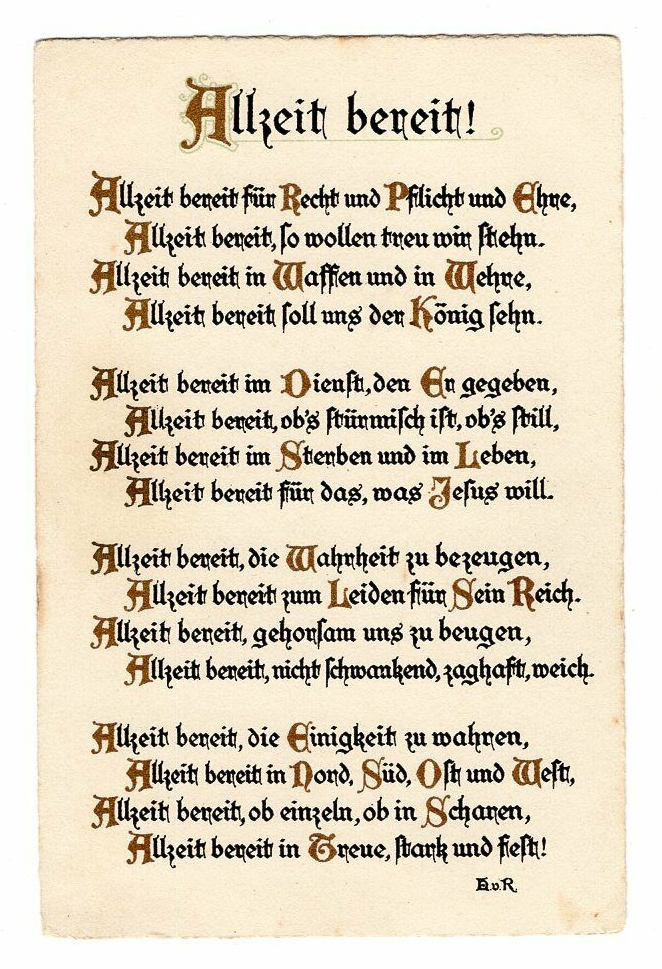 Allzeit bereit!
Allzeit bereit für Recht und Pflicht und Ehre,
Allzeit bereit, so wollen treu wir stehn.
Allzeit bereit in Waffen und in Wehre,
Allzeit bereit soll uns der König sehn.
Allzeit bereit im Dienst, den Er gegeben,
Allzeit bereit, ob's stürmisch ist, ob's still,
Allzeit bereit im Sterben und im Leben,
Allzeit bereit für das, was Jesus will.
Allzeit bereit, die Wahrheit zu bezeugen,
Allzeit bereit zum Leiden für Sein Reich.
Allzeit bereit, gehorsam uns zu beugen,
Allzeit bereit, nicht schwankend, zaghaft, weich.
Allzeit bereit, die Einigkeit zu wahren,
Allzeit bereit in Nord, Süd, Ost und West,
Allzeit bereit, ob einzeln, ob in Scharen,
Allzeit bereit in Treue, stark und fest!